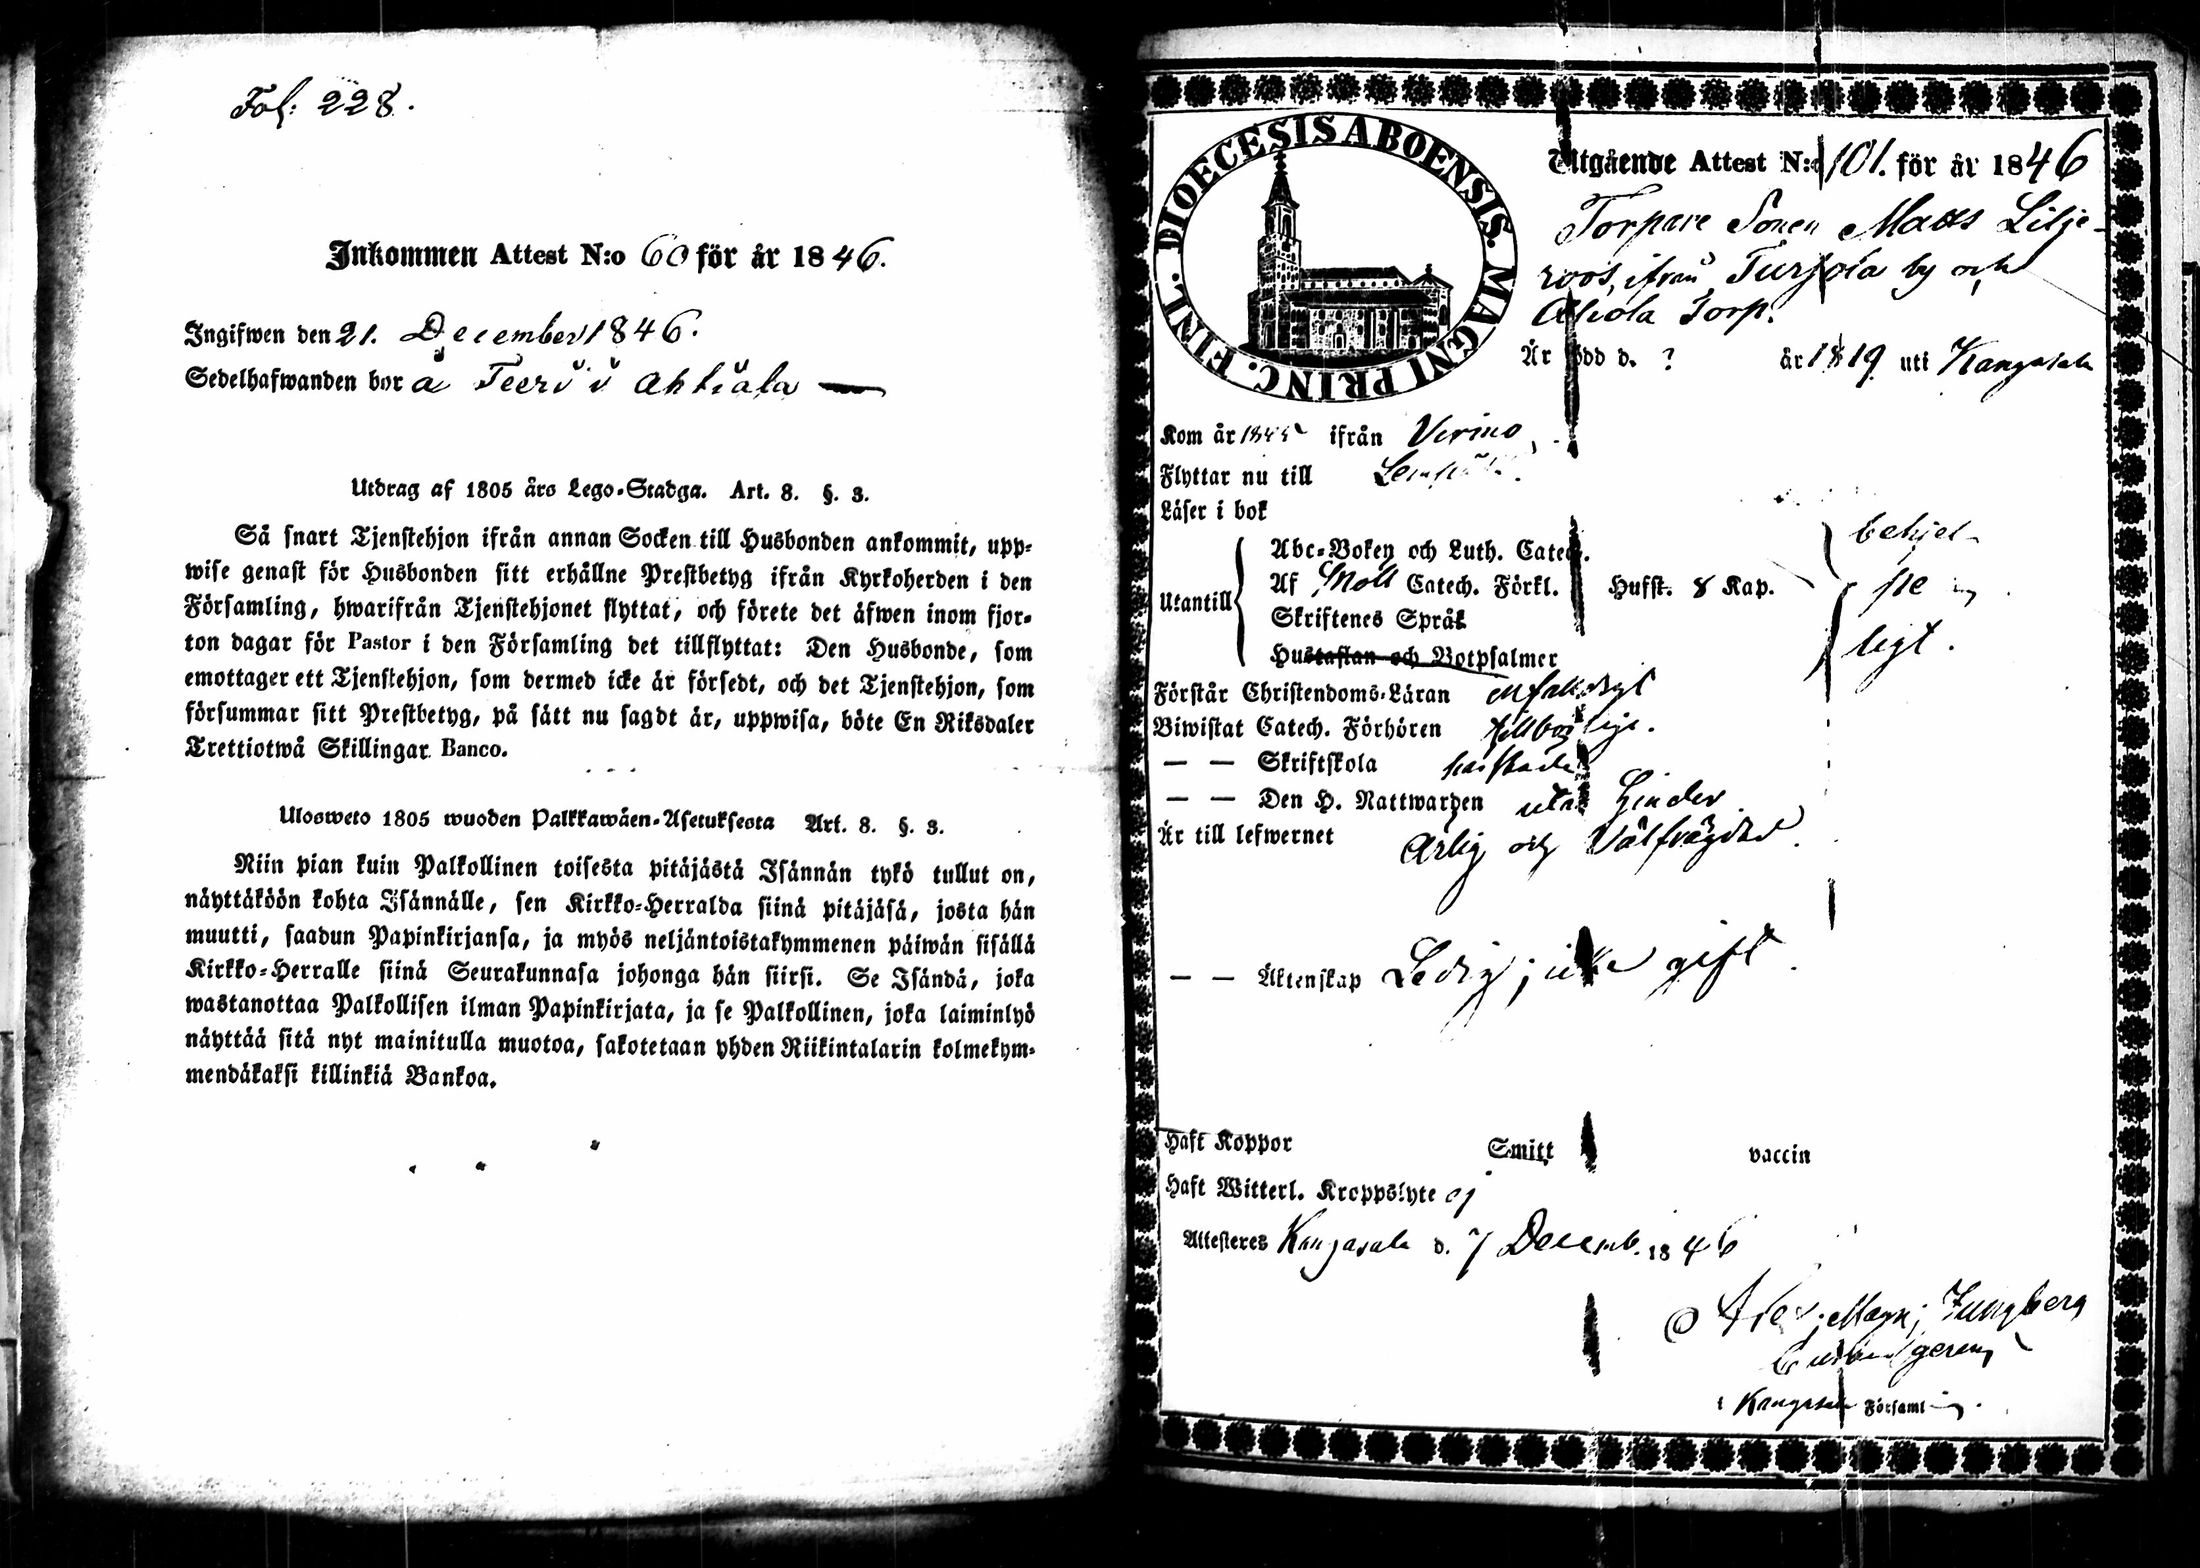 Fol: 228.
Inkommen Attest N:o 60 för år 1846.
Ingifwen den 21. December 1846.
Sedelhafwanden bor å Teeri i Ahtiala
Utdrag af 1805 års Lego-Stadga. Art. 8. §. 3.
Så snart Tjenstehjon ifrån annan Socken till Husbonden ankommit, upp-
wise genast för Husbonden sitt erhållne Prestbetyg ifrån Kyrkoherden i den
Församling, hwarifrån Tjenstehjonet flyttat, och förete det äfwen inom fjor-
ton dagar för Pastor i den Församling det tillflyttat: Den Husbonde, som
emottager ett Tjenstehjon, som dermed icke är försedt, och det Tjenstehjon, som
försummar sitt Prestbetyg, på sätt nu sagdt är, uppwisa, böte En Riksdaler
Trettiotwå Skillingar Banco.
Ulosweto 1805 wuoden Palkkawäen-Asetuksesta Art. 8. §. 3.
Niin pian kuin Palkollinen toisesta pitäjästä Isännän tykö tullut on,
näyttäköön kohta Isännälle, sen Kirkko-Herralda siinä pitäjäsä, josta hän
muutti, saadun Papinkirjansa, ja myös neljäntoistakymmenen päiwän sisällä
Kirkko-Herralle siinä Seurakunnasa johonga hän siirsi. Se Isändä, joka
wastanottaa Palkollisen ilman Papinkirjata, ja se Palkollinen, joka laiminlyö
näyttää sitä nyt mainitulla muotoa, sakotetaan yhden Riikintalarin kolmekym-
mendäkaksi killinkiä Bankoa.
DIOECESIS ABOENSIS. MAGNI PRINC. FINL.
Utgående Attest N:o 101. för år 1846
Torpare Sonen Matts Lilje-
roos, ifrån Turjola by och
Torp.
Är född d. ? år 1819 uti Kangasala
Kom år 1845 ifrån
Flyttar nu till
Läser i bok
Utantill
Abc-Boken och Luth. Catech.
Af Moll Catech. Förkl. Husst. 8 Kap.
Skriftenes Språk
Hustaflan och Botpsalmer
behjel-
pe
ligt.
Förstår Christendoms-Läran enfaldigt
Biwistat Catech. Förhören tillbörligt.
— — Skriftskola
— — Den H. Nattwarden utan hinder
Är till lefwernet ärlig och Välfrägdad.
— — Äktenskap Ledig; icke gift.
Haft Koppor Smitt vaccin
Haft Witterl. Kroppslyte ej
Attesteres Kangasala d. 7 Decemb. 1846
i Kangasala Församling.